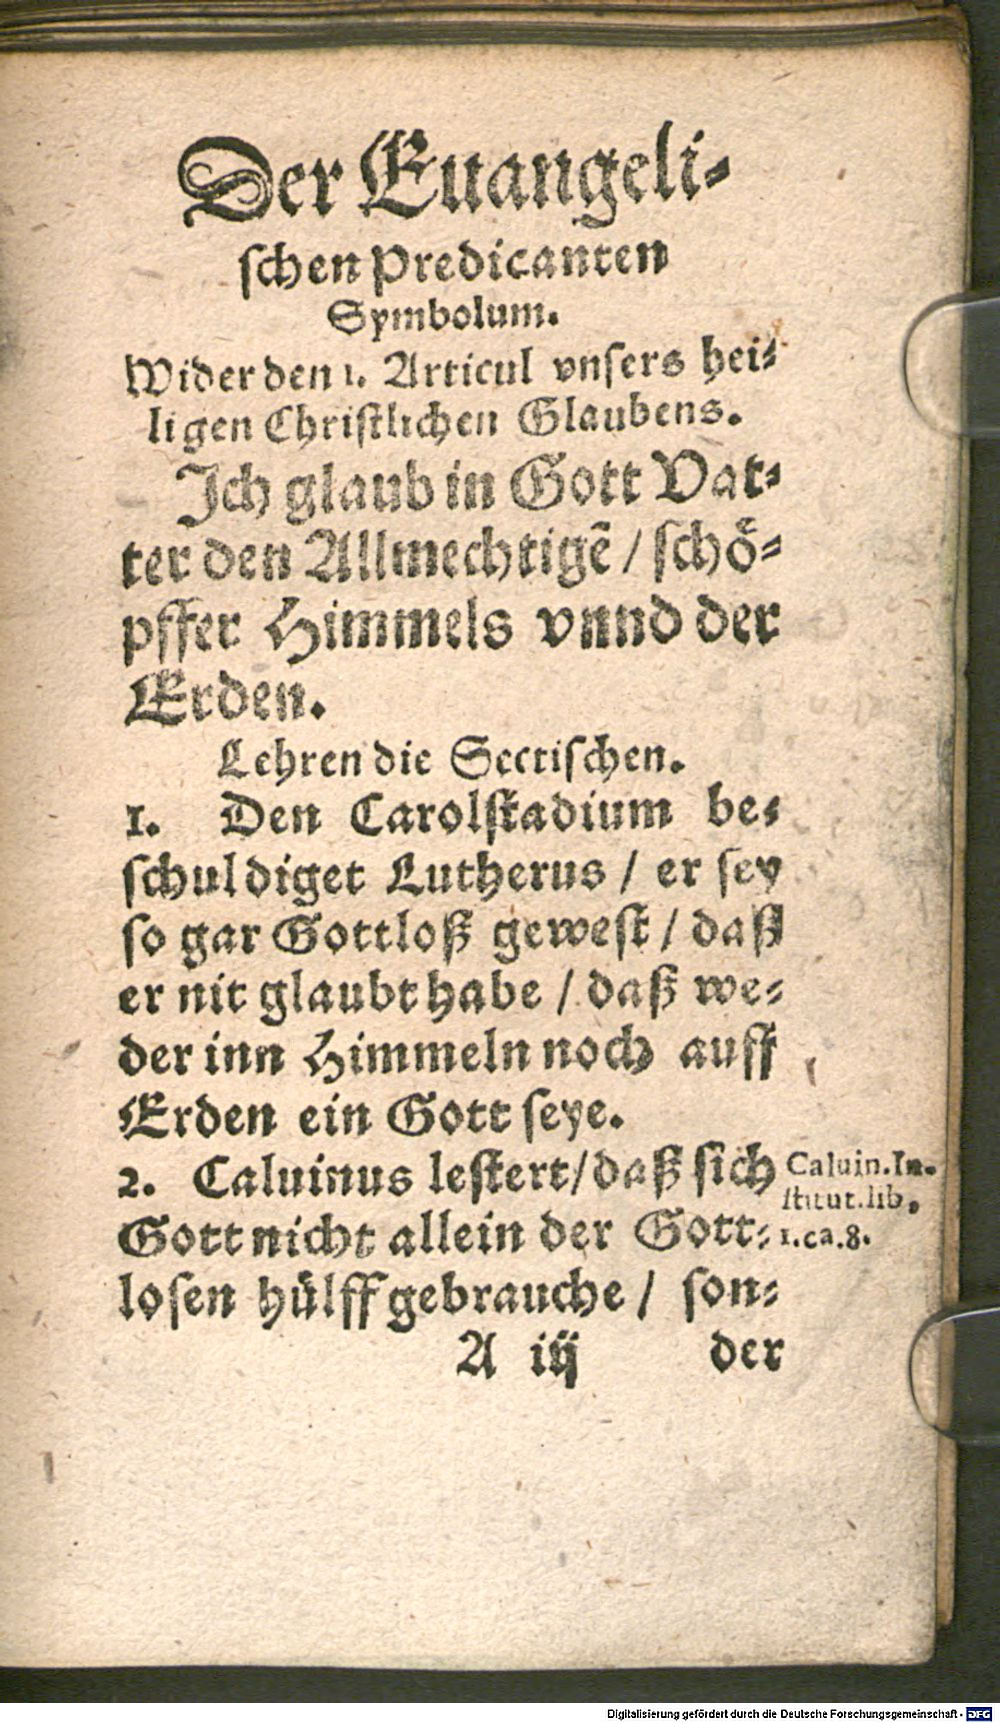 Der Euangeli⸗
ſchen Predicanten
Symbolum.
Wider den 1. Articul vnſers hei⸗
ligen Chriſtlichen Glaubens.
Ich glaub in Gott Vat⸗
ter den Allmechtigẽ / ſchoͤ⸗
pffer Himmels vnnd der
Erden.
Lehren die Sectiſchen.
1. Den Carolſtadium be⸗
ſchuldiget Lutherus / er ſey
ſo gar Gottloß geweſt / daß
er nit glaubt habe / daß we⸗
der inn Himmeln noch auff
Erden ein Gott ſeye.
2. Caluinus leſtert / daß ſich
Gott nicht allein der Gott⸗
loſen huͤlff gebrauche / ſon⸗
A iij der
Caluin. In-
ſtitut. lib.
1. ca. 8.
Digitalisierung gefördert durch die Deutsche Forschungsgemeinschaft - DFG